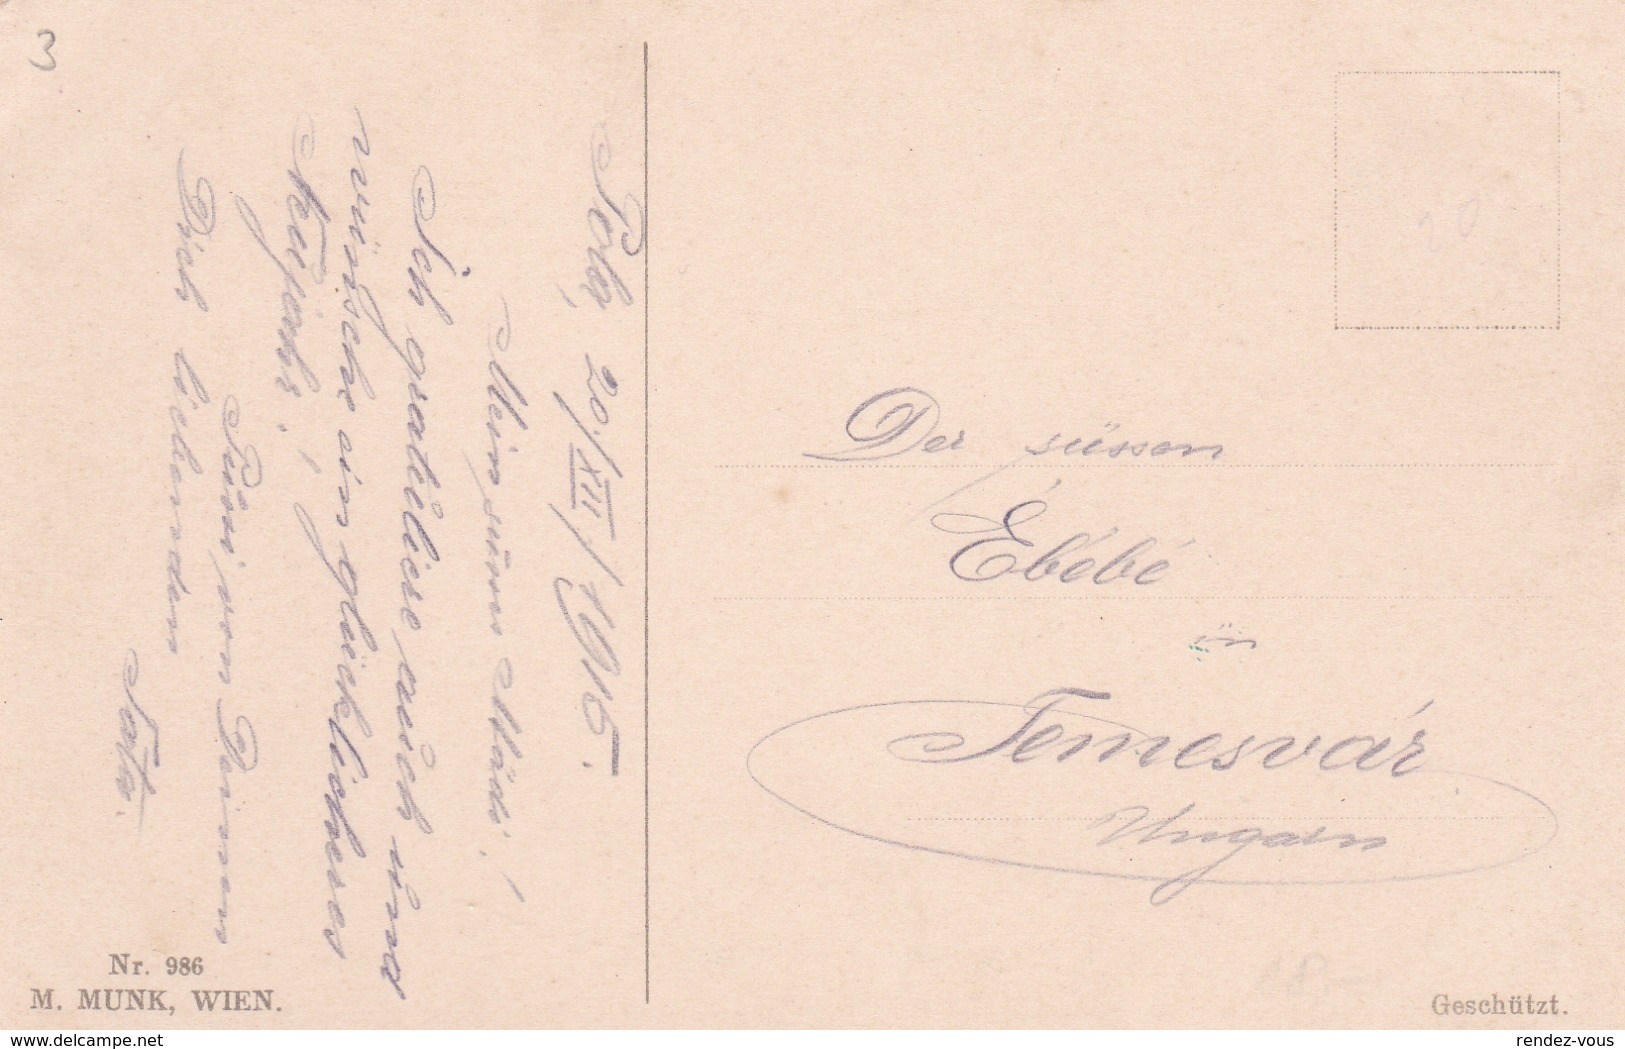 3
Pola, 20./XII./1915.
Mein süsses Mädi!
Ich gratuliere auch und
wünsche ein glückliches
Neujahr!
Pussi von Deinen
Dich liebenden
Tata.
20
Der süssen
Ébébé
in
Temesvár
Ungarn
Nr. 986
M. MUNK, WIEN.
Geschützt.
www.delcampe.net
rendez-vous